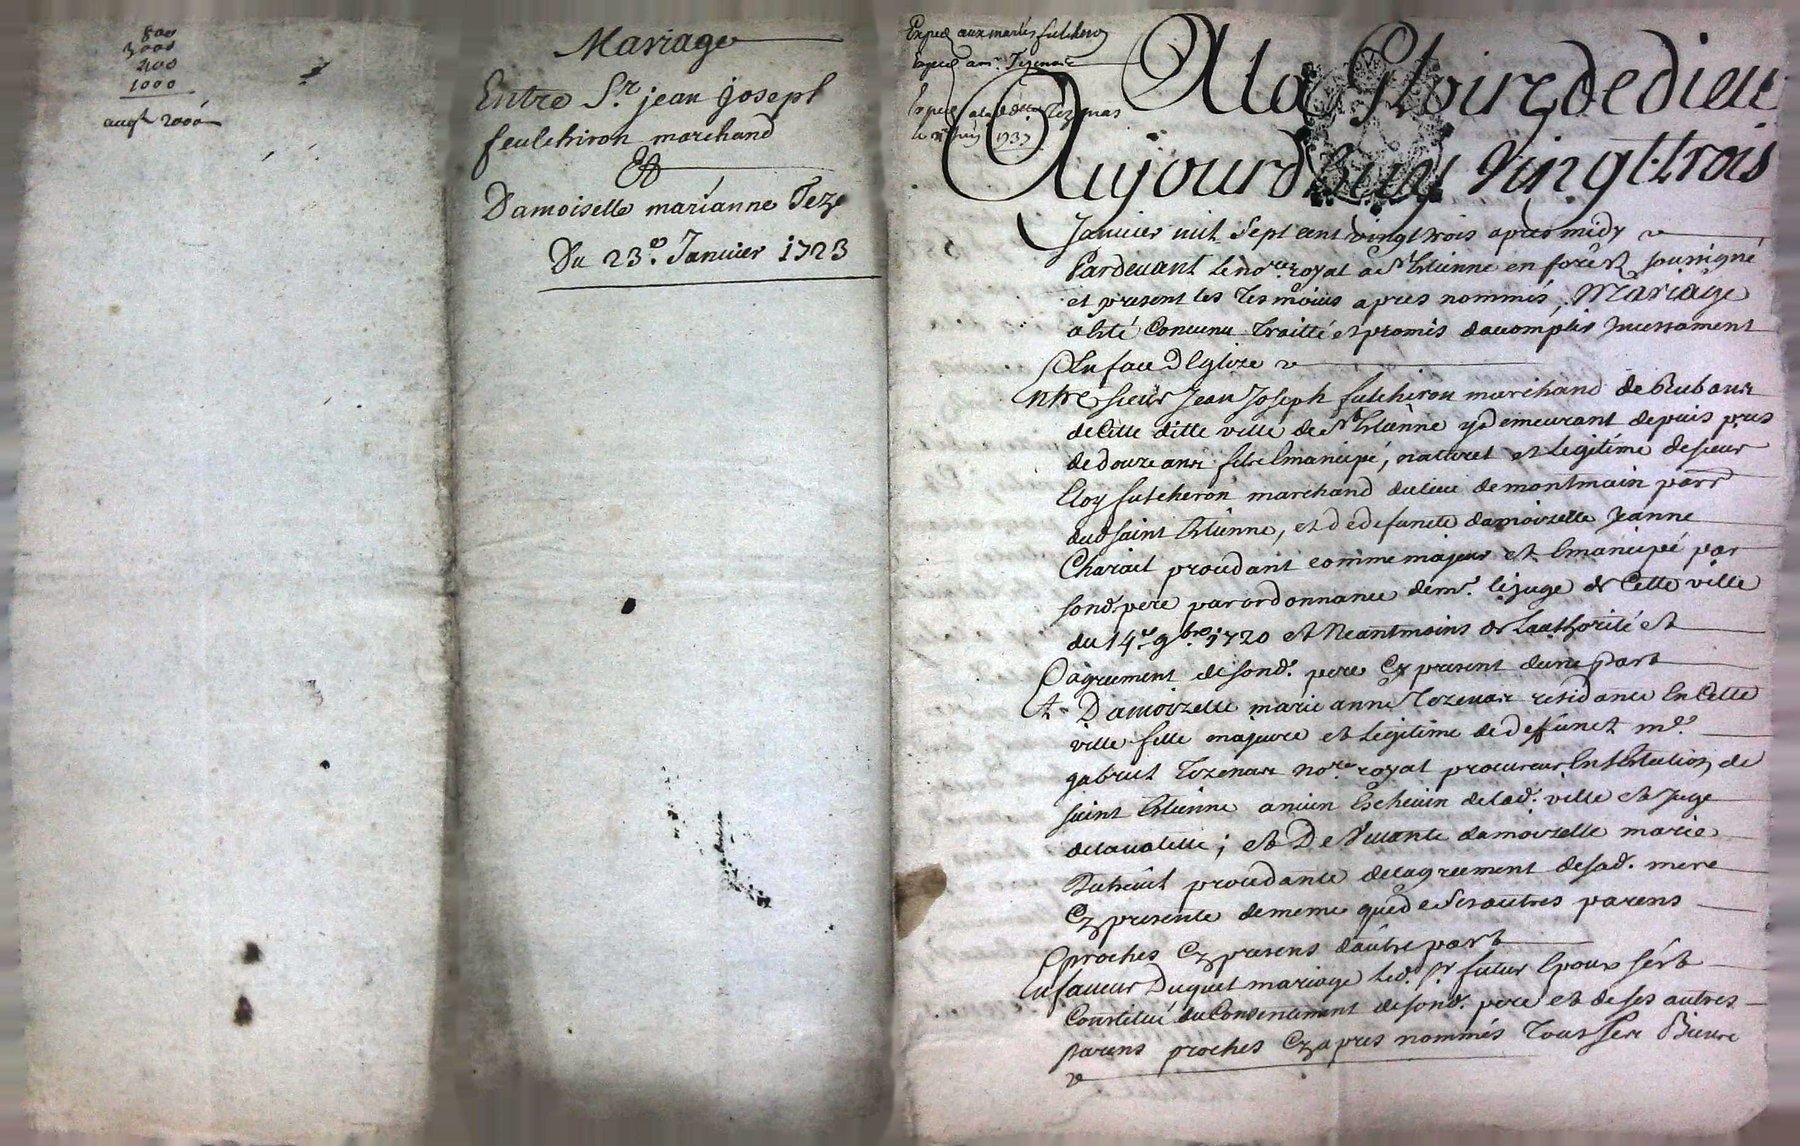 800
3000
200
1000
augt 2000
Mariage
Entre Sr. jean joseph
feulchiron marchand
Et
Damoiselle marianne Teze
Du 23e. Janvier 1723
Exped aux mariés fulcheron
Exped a mr. Tezenas
1737
A la Gloire de dieu
Aujourdhuy Vingt-trois
Janvier mil Sept cent vingt trois apres midy
Pardevant le nore. royal a St. Etienne en forest soussigné
et present les tesmoins apres nommés, Mariage
a Esté Convenu Traitté et promis dacomplir Incessament
En face dEglize
Entre sieur Jean Joseph fulchiron marchand de Rubans
de Cette ditte ville de St. Etienne y demeurant depuis pres
de douze ans fils Emancipé, naturel et Legitime de sieur
Eloy fulcheron marchand du lieu de montmain parr
dud saint Etienne, et de defuncte damoizelle Jeanne
Charait procedant comme majeur et Emancipé par
sond. pere par ordonnance de mr. le juge de Cette ville
du 14e. 9bre. 1720 et Neantmoins de Lauthorité et
agreement de sond. pere Cy present dune part
Et Damoizelle marie anne Tezenas residante En Cette
ville fille majeure et Legitime de deffunct me.
gabriel Tezenas nore. royal procureur En lElection de
saint Etienne ancien Eschevin de lad. ville et Juge
de la valette; et De Vivante damoizelle marie
procedante de lagreement de sad. mere
Cy presente de meme que de Ses autres parens
proches Cy presens dautre part
En faveur Duquel mariage led. sr futur Epoux sest
Constitué du Consentement de sond. pere et de ses autres
parens proches Cy apres nommés Tous ses Biens